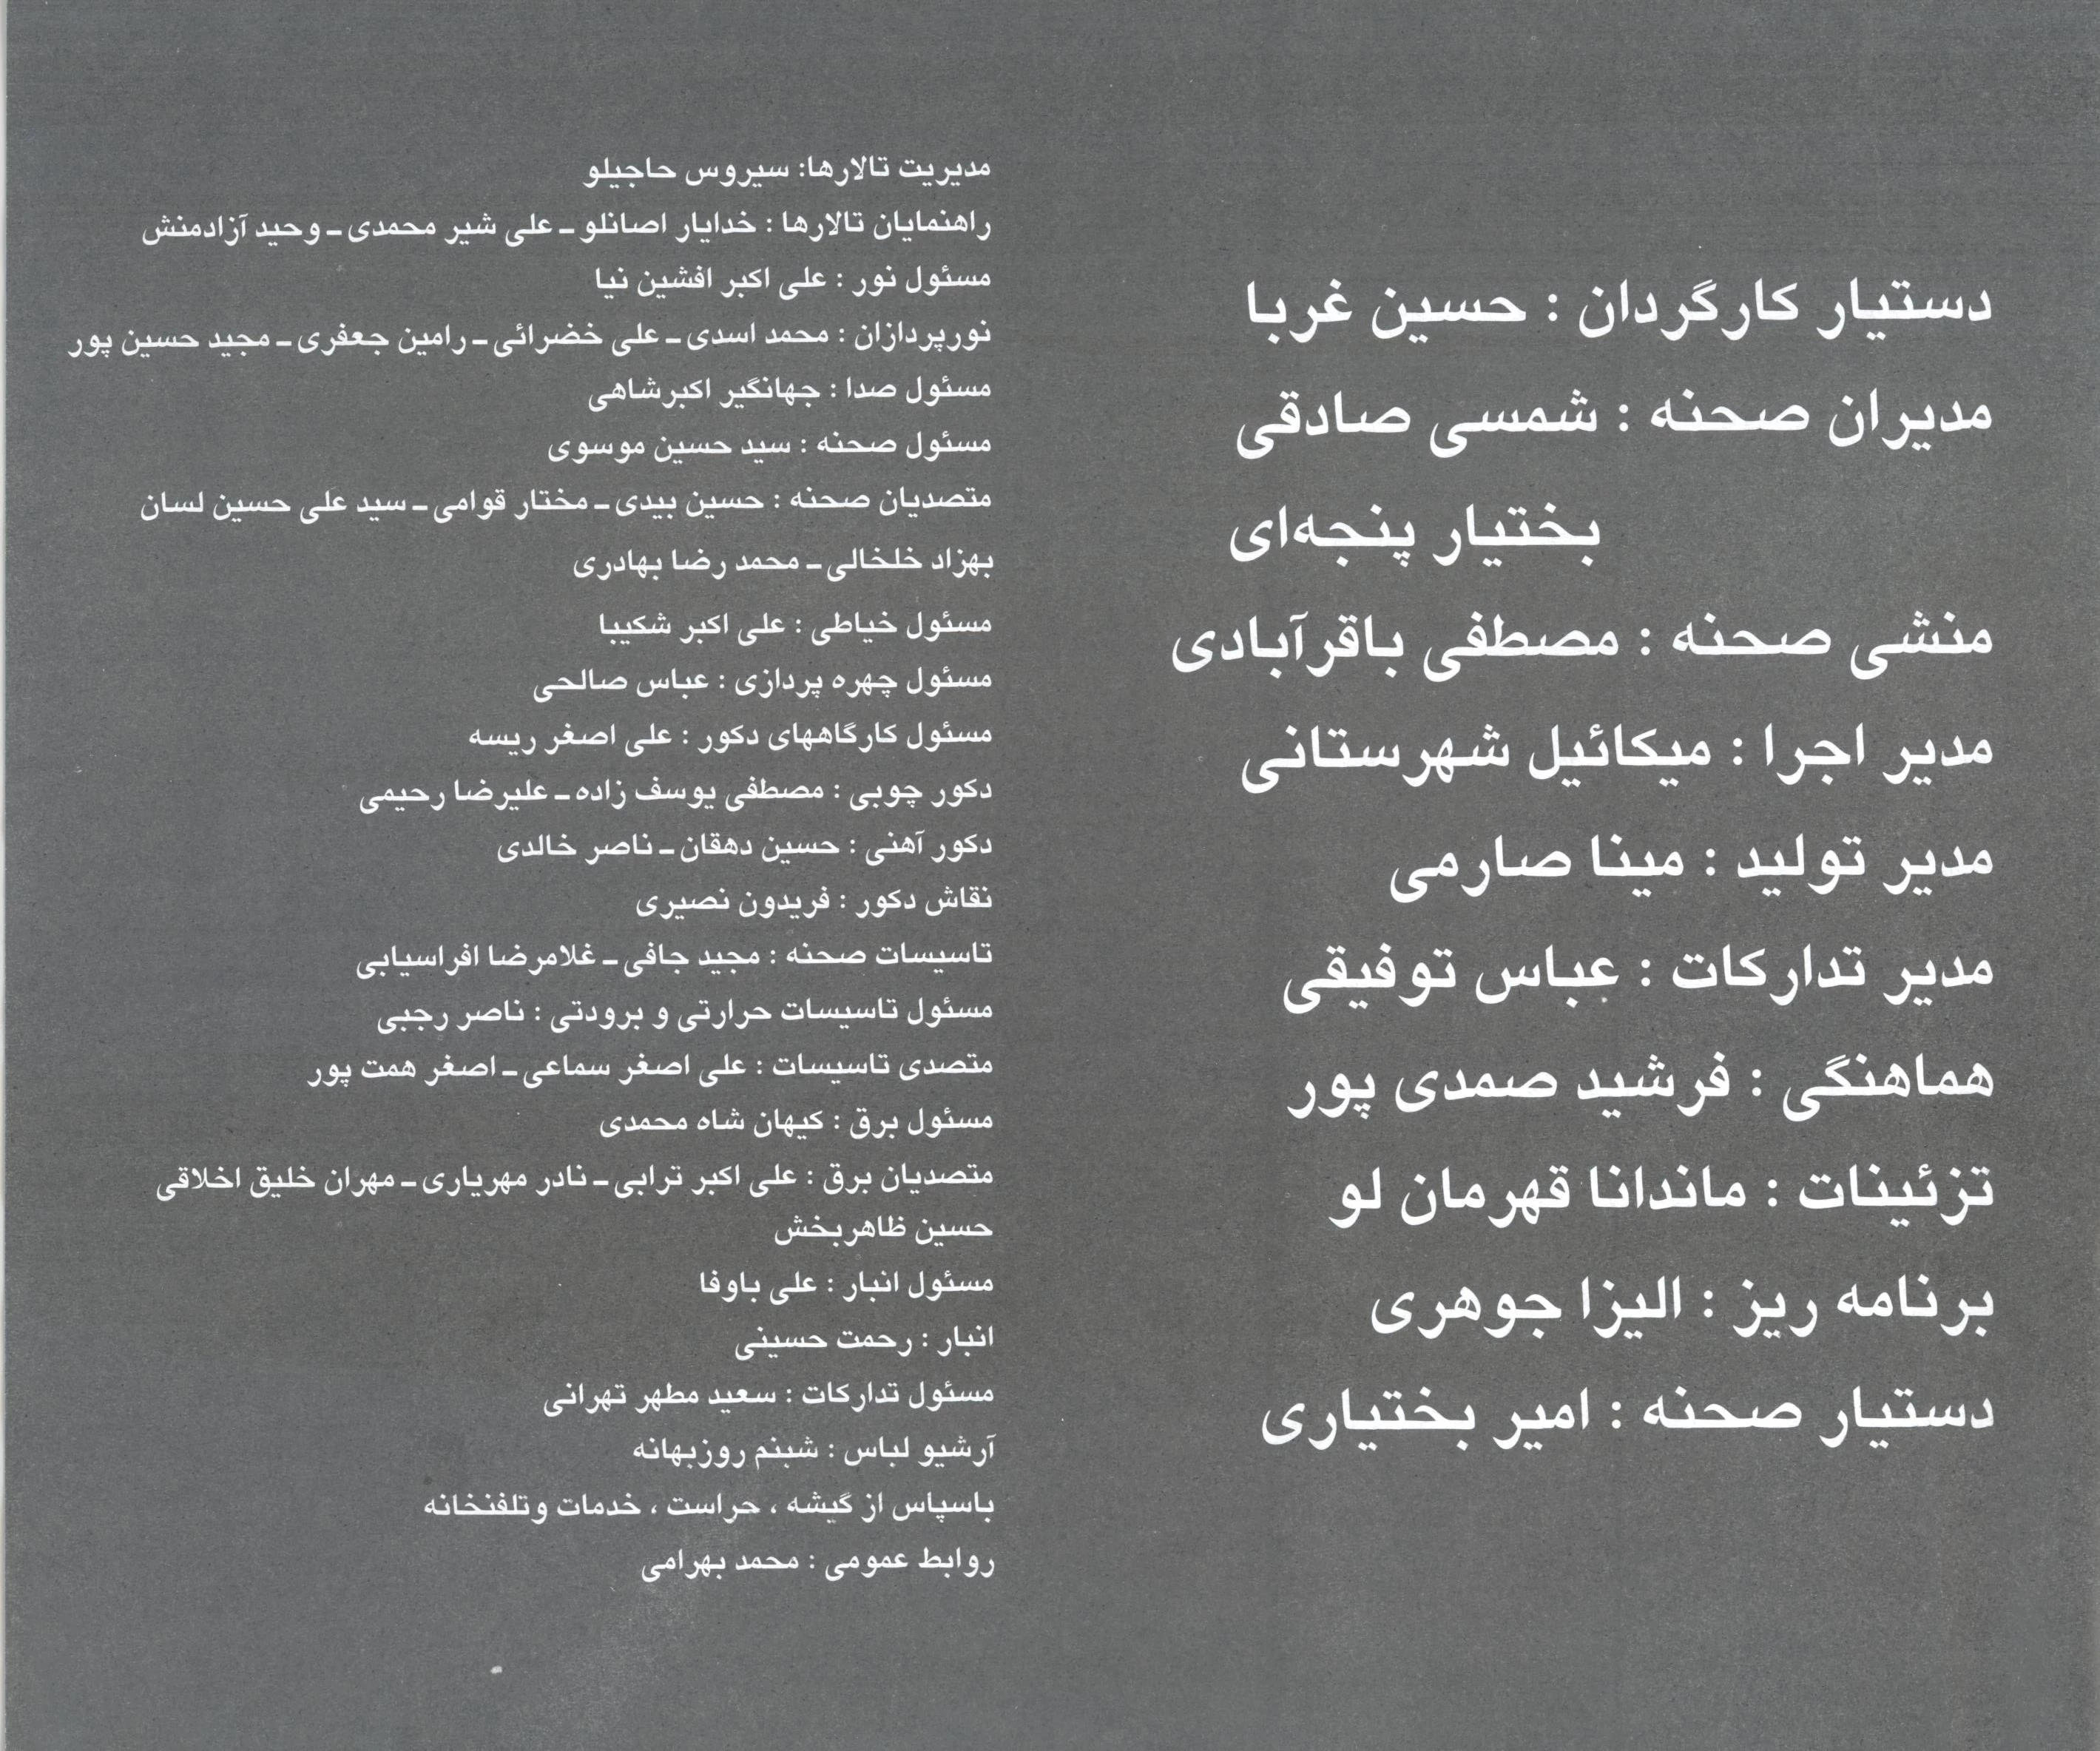 دستیار کارگردان : حسین غربا
مدیران صحنه : شمسی صادقی
بختیار پنجه‌ای
منشی صحنه : مصطفی باقرآبادی
مدیر اجرا : میکائیل شهرستانی
مدیر تولید : مینا صارمی
مدیر تدارکات : عباس توفیقی
هماهنگی : فرشید صمدی پور
تزئینات : ماندانا قهرمان لو
برنامه ریز : الیزا جوهری
دستیار صحنه : امیر بختیاری
مدیریت تالارها: سیروس حاجیلو
راهنمایان تالارها : خدایار اصانلو ـ علی شیر محمدی ـ وحید آزادمنش
مسئول نور : علی اکبر افشین نیا
نورپردازان : محمد اسدی ـ علی خضرائی ـ رامین جعفری ـ مجید حسین پور
مسئول صدا : جهانگیر اکبرشاهی
مسئول صحنه : سید حسین موسوی
متصدیان صحنه : حسین بیدی ـ مختار قوامی ـ سید علی حسین لسان
بهزاد خلخالی ـ محمد رضا بهادری
مسئول خیاطی : علی اکبر شکیبا
مسئول چهره پردازی : عباس صالحی
مسئول کارگاههای دکور : علی اصغر ریسه
دکور چوبی : مصطفی یوسف زاده ـ علیرضا رحیمی
دکور آهنی : حسین دهقان ـ ناصر خالدی
نقاش دکور : فریدون نصیری
تاسیسات صحنه : مجید جافی ـ غلامرضا افراسیابی
مسئول تاسیسات حرارتی و برودتی : ناصر رجبی
متصدی تاسیسات : علی اصغر سماعی ـ اصغر همت پور
مسئول برق : کیهان شاه محمدی
متصدیان برق : علی اکبر ترابی ـ نادر مهریاری ـ مهران خلیق اخلاقی
حسین ظاهربخش
مسئول انبار : علی باوفا
انبار : رحمت حسینی
مسئول تدارکات : سعید مطهر تهرانی
آرشیو لباس : شبنم روزبهانه
باسپاس از گیشه ، حراست ، خدمات وتلفنخانه
روابط عمومی : محمد بهرامی